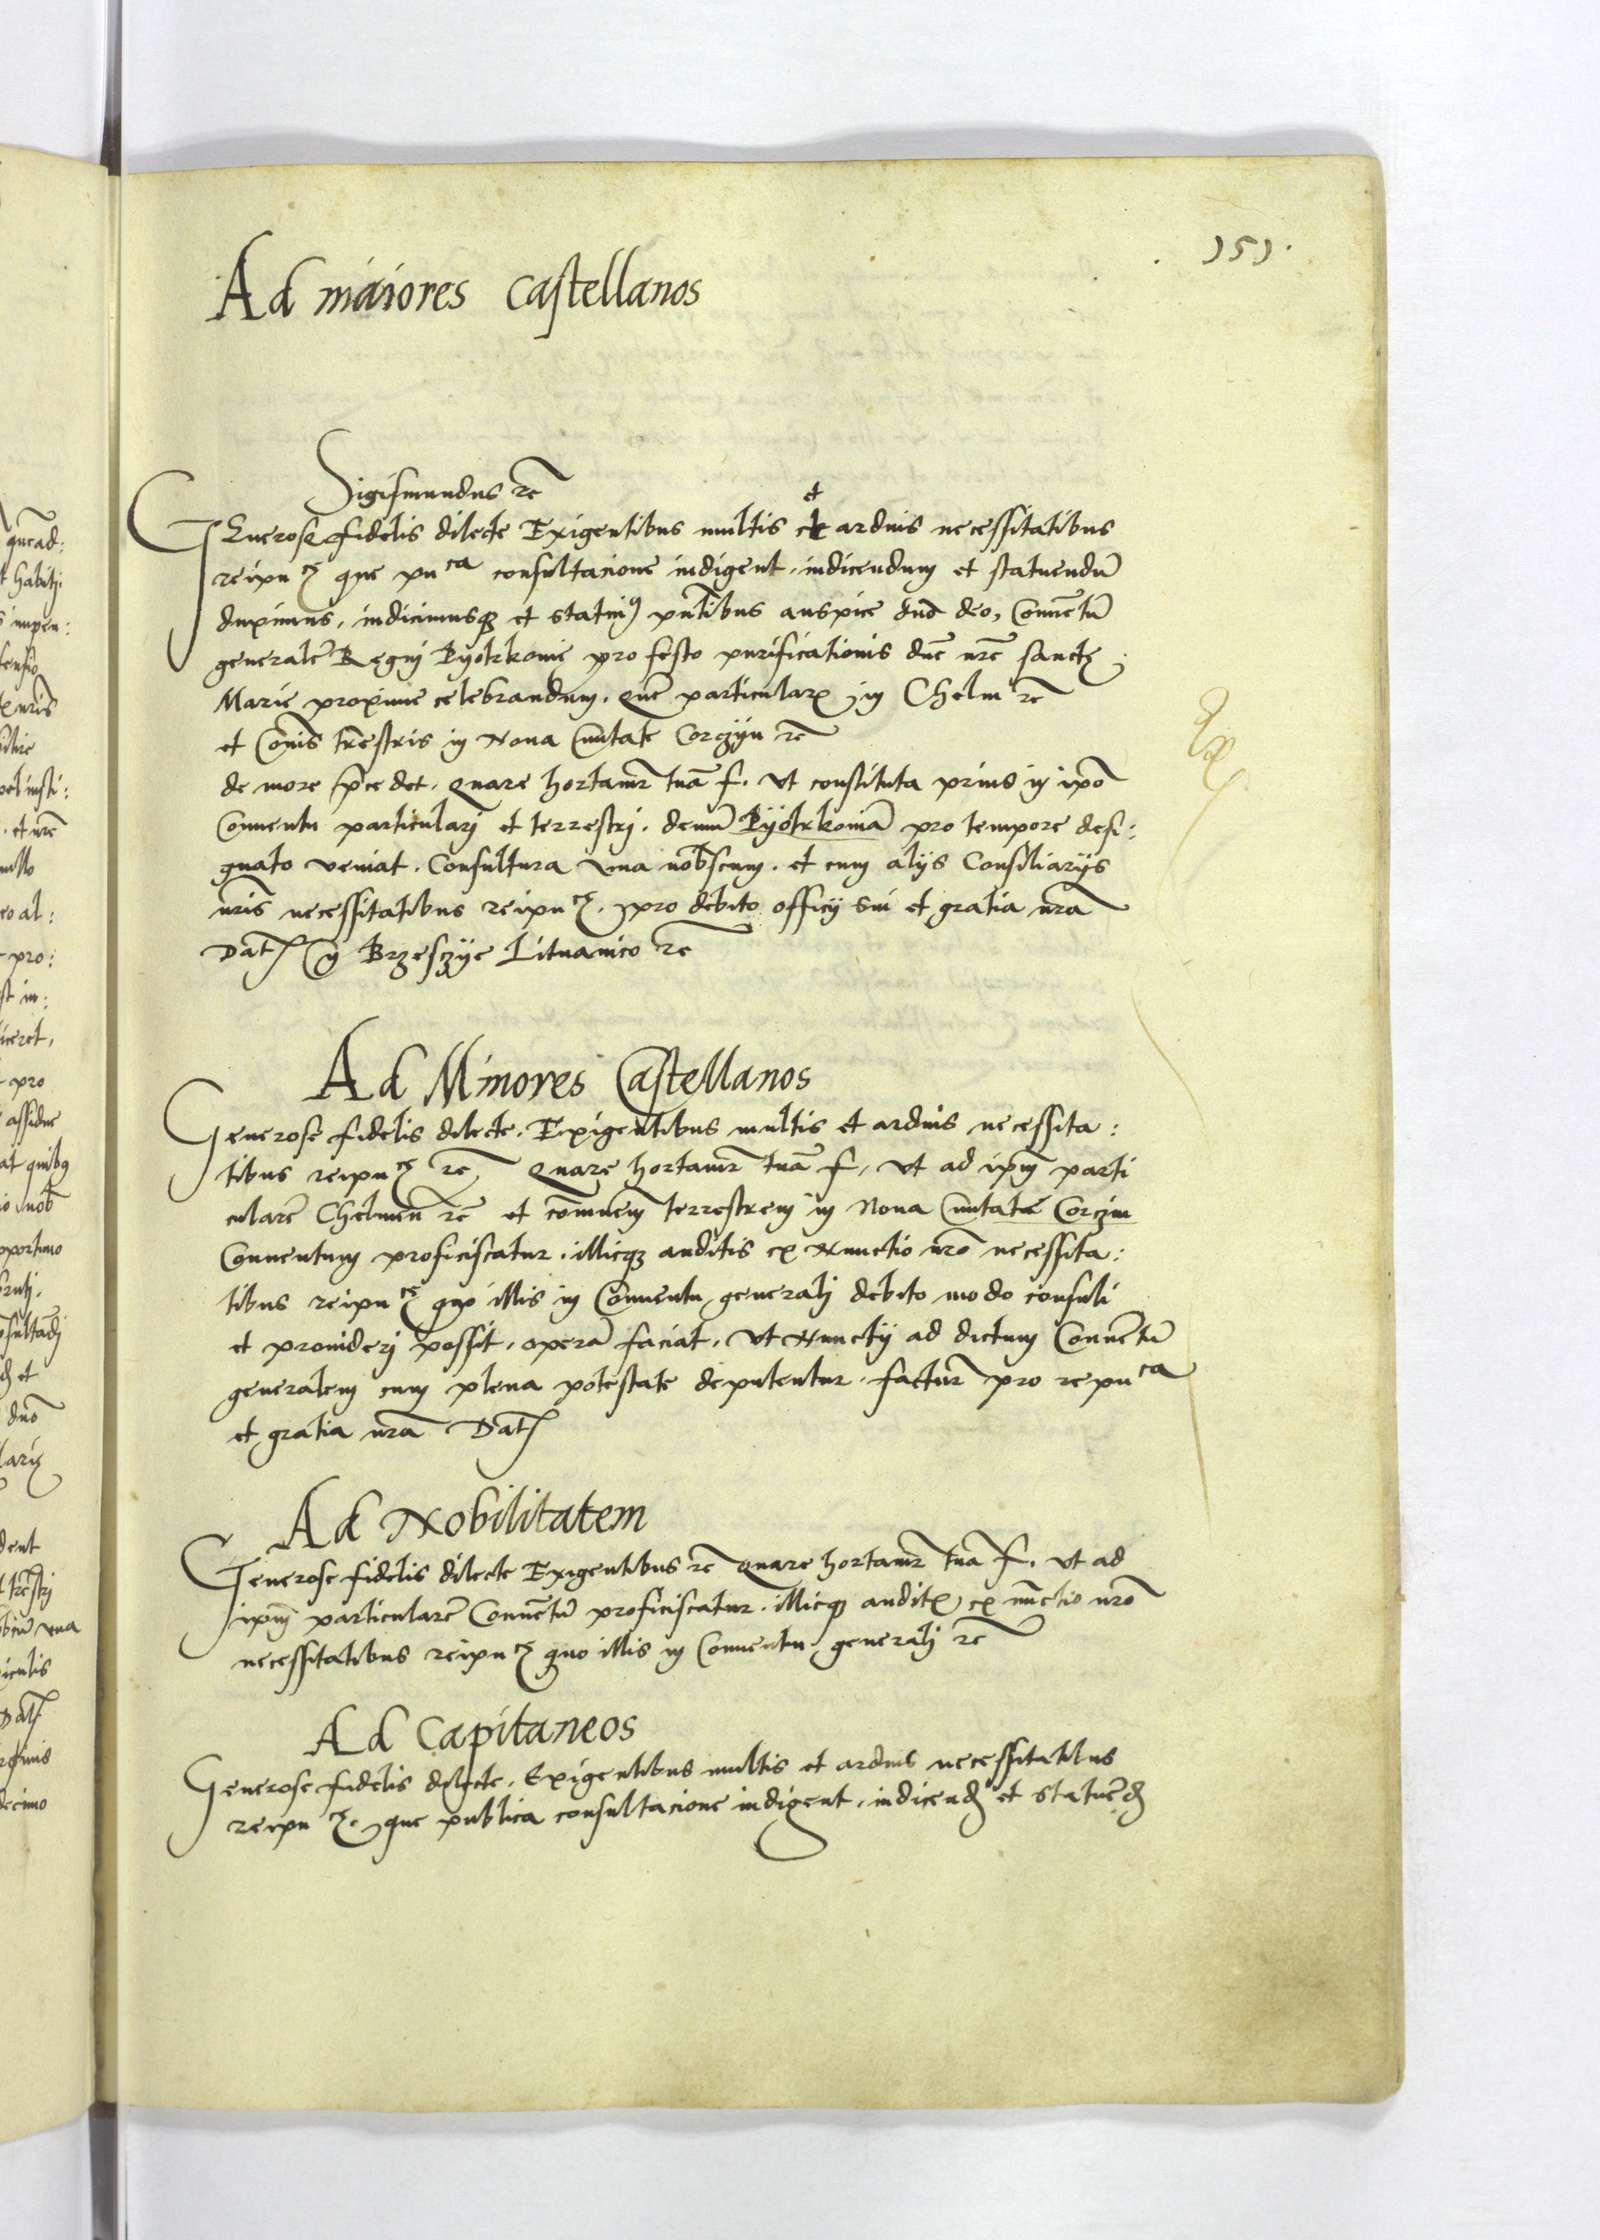 151.
Ad maiores Castellanos
Sigismundus rc̃
GEnerose fidelis dilecte Exigentibus multis et arduis necessitatibus
reipu cȩ que pu ca consultacione indigent, indicendum et statuendũ
duximus, indicimusq; et statuim9 pñtibus auspice dño deo, Conuẽtũ
generalẽ Regnj Pyotrkouie pro festo purificationis dñe nrẽ sanctȩ
Marie proxime celebrandum. quẽ particular in Chelm rc̃
et Cõnis trrẽstris in Noua Ciuitate Corczyn rc̃
de more p̃cedet. Quare hortamr̃ tuã f. Vt constituta prius in ip̃o
Conuentu particularj et terrestrj. demũ Pyotrkouiã pro tempore desi:
gnato veniat. Consultura vna nobiscum. et cum alijs Consiliarijs
nrĩs necessitatibus reipu cȩ. pro debito officij sui et gratia nrã
Dat in Brzesczye Lituanico rc̃
Ad Minores Castellanos
Generose fidelis dilecte. Exigentibus multis et arduis necessita:
tibus reipu cȩ rc̃ Quare hortamr̃ tuã f. Vt ad ip̃m parti
cularẽ Chelmen rc̃ et cõmunem terrestrem in Noua Ciuitate Corczin
Conuentum proficiscatur. illicq; auditis ex Nunctio nrõ necessita:
tibus reipu cȩ quo illis in Conuentu generalj debito modo consuli
et prouiderj possit, operã faciat. Vt Nunctij ad dictum Conuẽtũ
generalem cum plena potestate deputentur. factur̃ pro repu ca
et gratia nrã Dat
Ad Nobilitatem
Generose fidelis dilecte Exigentibus rc̃ Quare hortamr̃ tuã f. Vt ad
ip̃m particularẽ Conuẽtũ proficiscatur. illicq; audit ex nũctio nrõ
necessitatibus reipu cȩ quo illis in Conuentu generalj rc̃
Ad Capitaneos
Generose fidelis dilecte. Exigentibus multis et arduis necessitatibus
reipu cȩ. que publica consultacione indigent. indicend et statuẽd